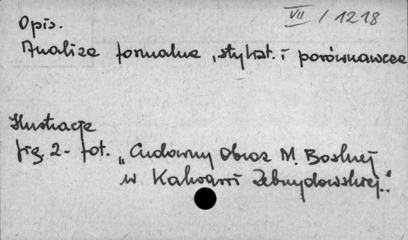 VII / 1218
Opis.
Analiza formalna, stylist. i porównawcza
Ilustracje
fig. 2 - fot. „Cudowny Obraz M. Boskiej
w Kalwarii Zebrzydowskiej."